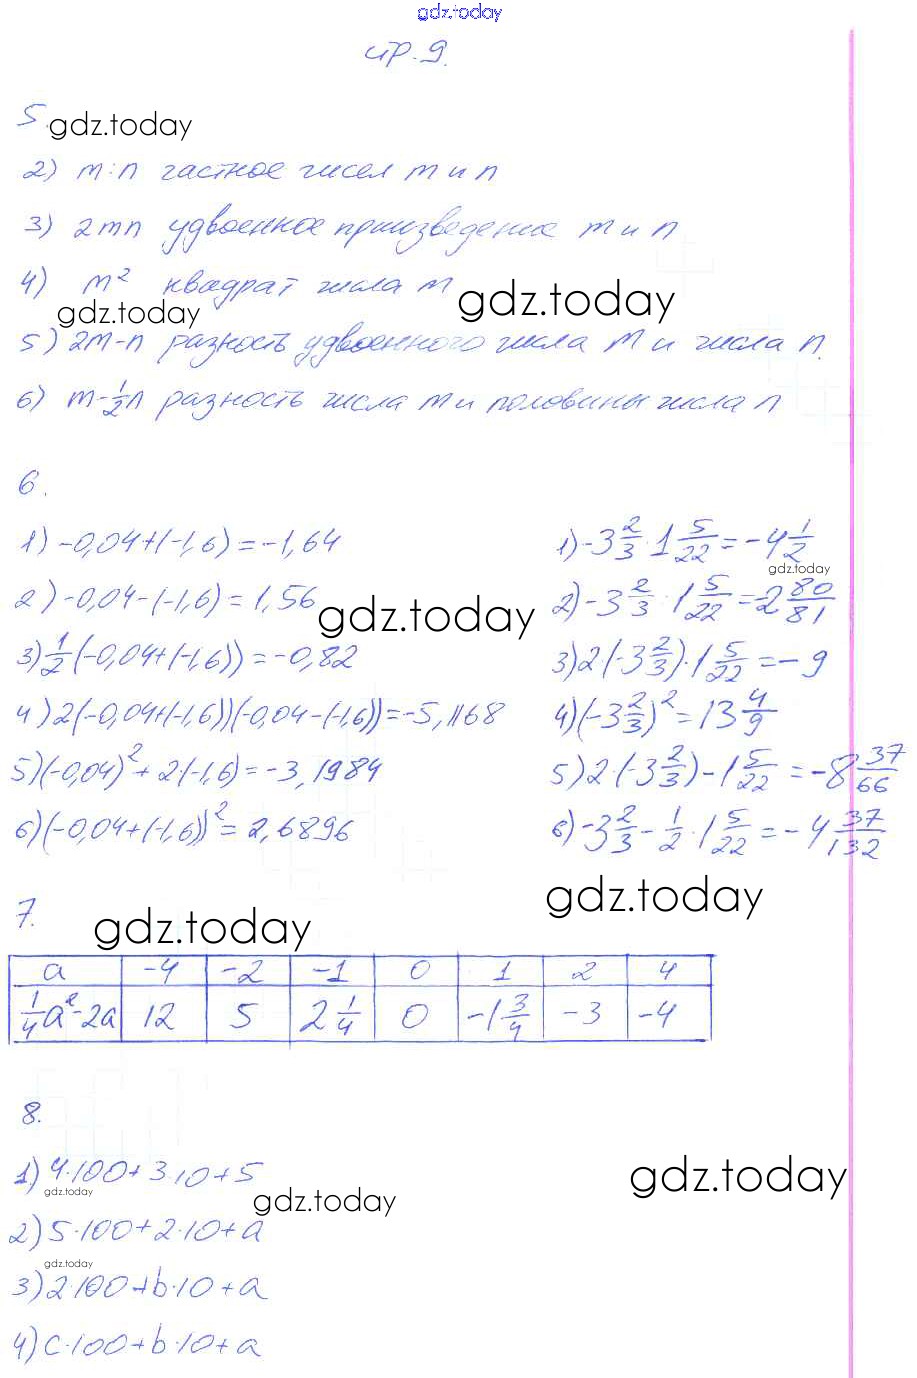 gdz.today
стр. 9.
5.
gdz.today
2) m:n частное чисел m и n
3) 2mn удвоенное произведение m и n
4) m² квадрат числа m
gdz.today gdz.today
5) 2m-n разность удвоенного числа m и числа n.
6) m-1/2n разность числа m и половины числа n
6.
1) -0,04+(-1,6)=-1,64
2) -0,04-(-1,6)=1,56
3) 1/2(-0,04+(-1,6))=-0,82
4) 2(-0,04+(-1,6))(-0,04-(-1,6))=-5,1168
5) (-0,04)²+2·(-1,6)=-3,1984
6) (-0,04+(-1,6))²=2,6896
1) -3 2/3·1 5/22=-4 1/2
gdz.today
2) -3 2/3:1 5/22=2 80/81
gdz.today
3) 2·(-3 2/3)·1 5/22=-9
4) (-3 2/3)²=13 4/9
5) 2·(-3 2/3)-1 5/22=-8 37/66
6) -3 2/3-1/2·1 5/22=-4 37/132
gdz.today
7.
gdz.today
a -4 -2 -1 0 1 2 4
1/4a²-2a 12 5 2 1/4 0 -1 3/4 -3 -4
8.
1) 4·100+3·10+5
gdz.today gdz.today gdz.today
2) 5·100+2·10+a
gdz.today
3) 2·100+b·10+a
4) c·100+b·10+a